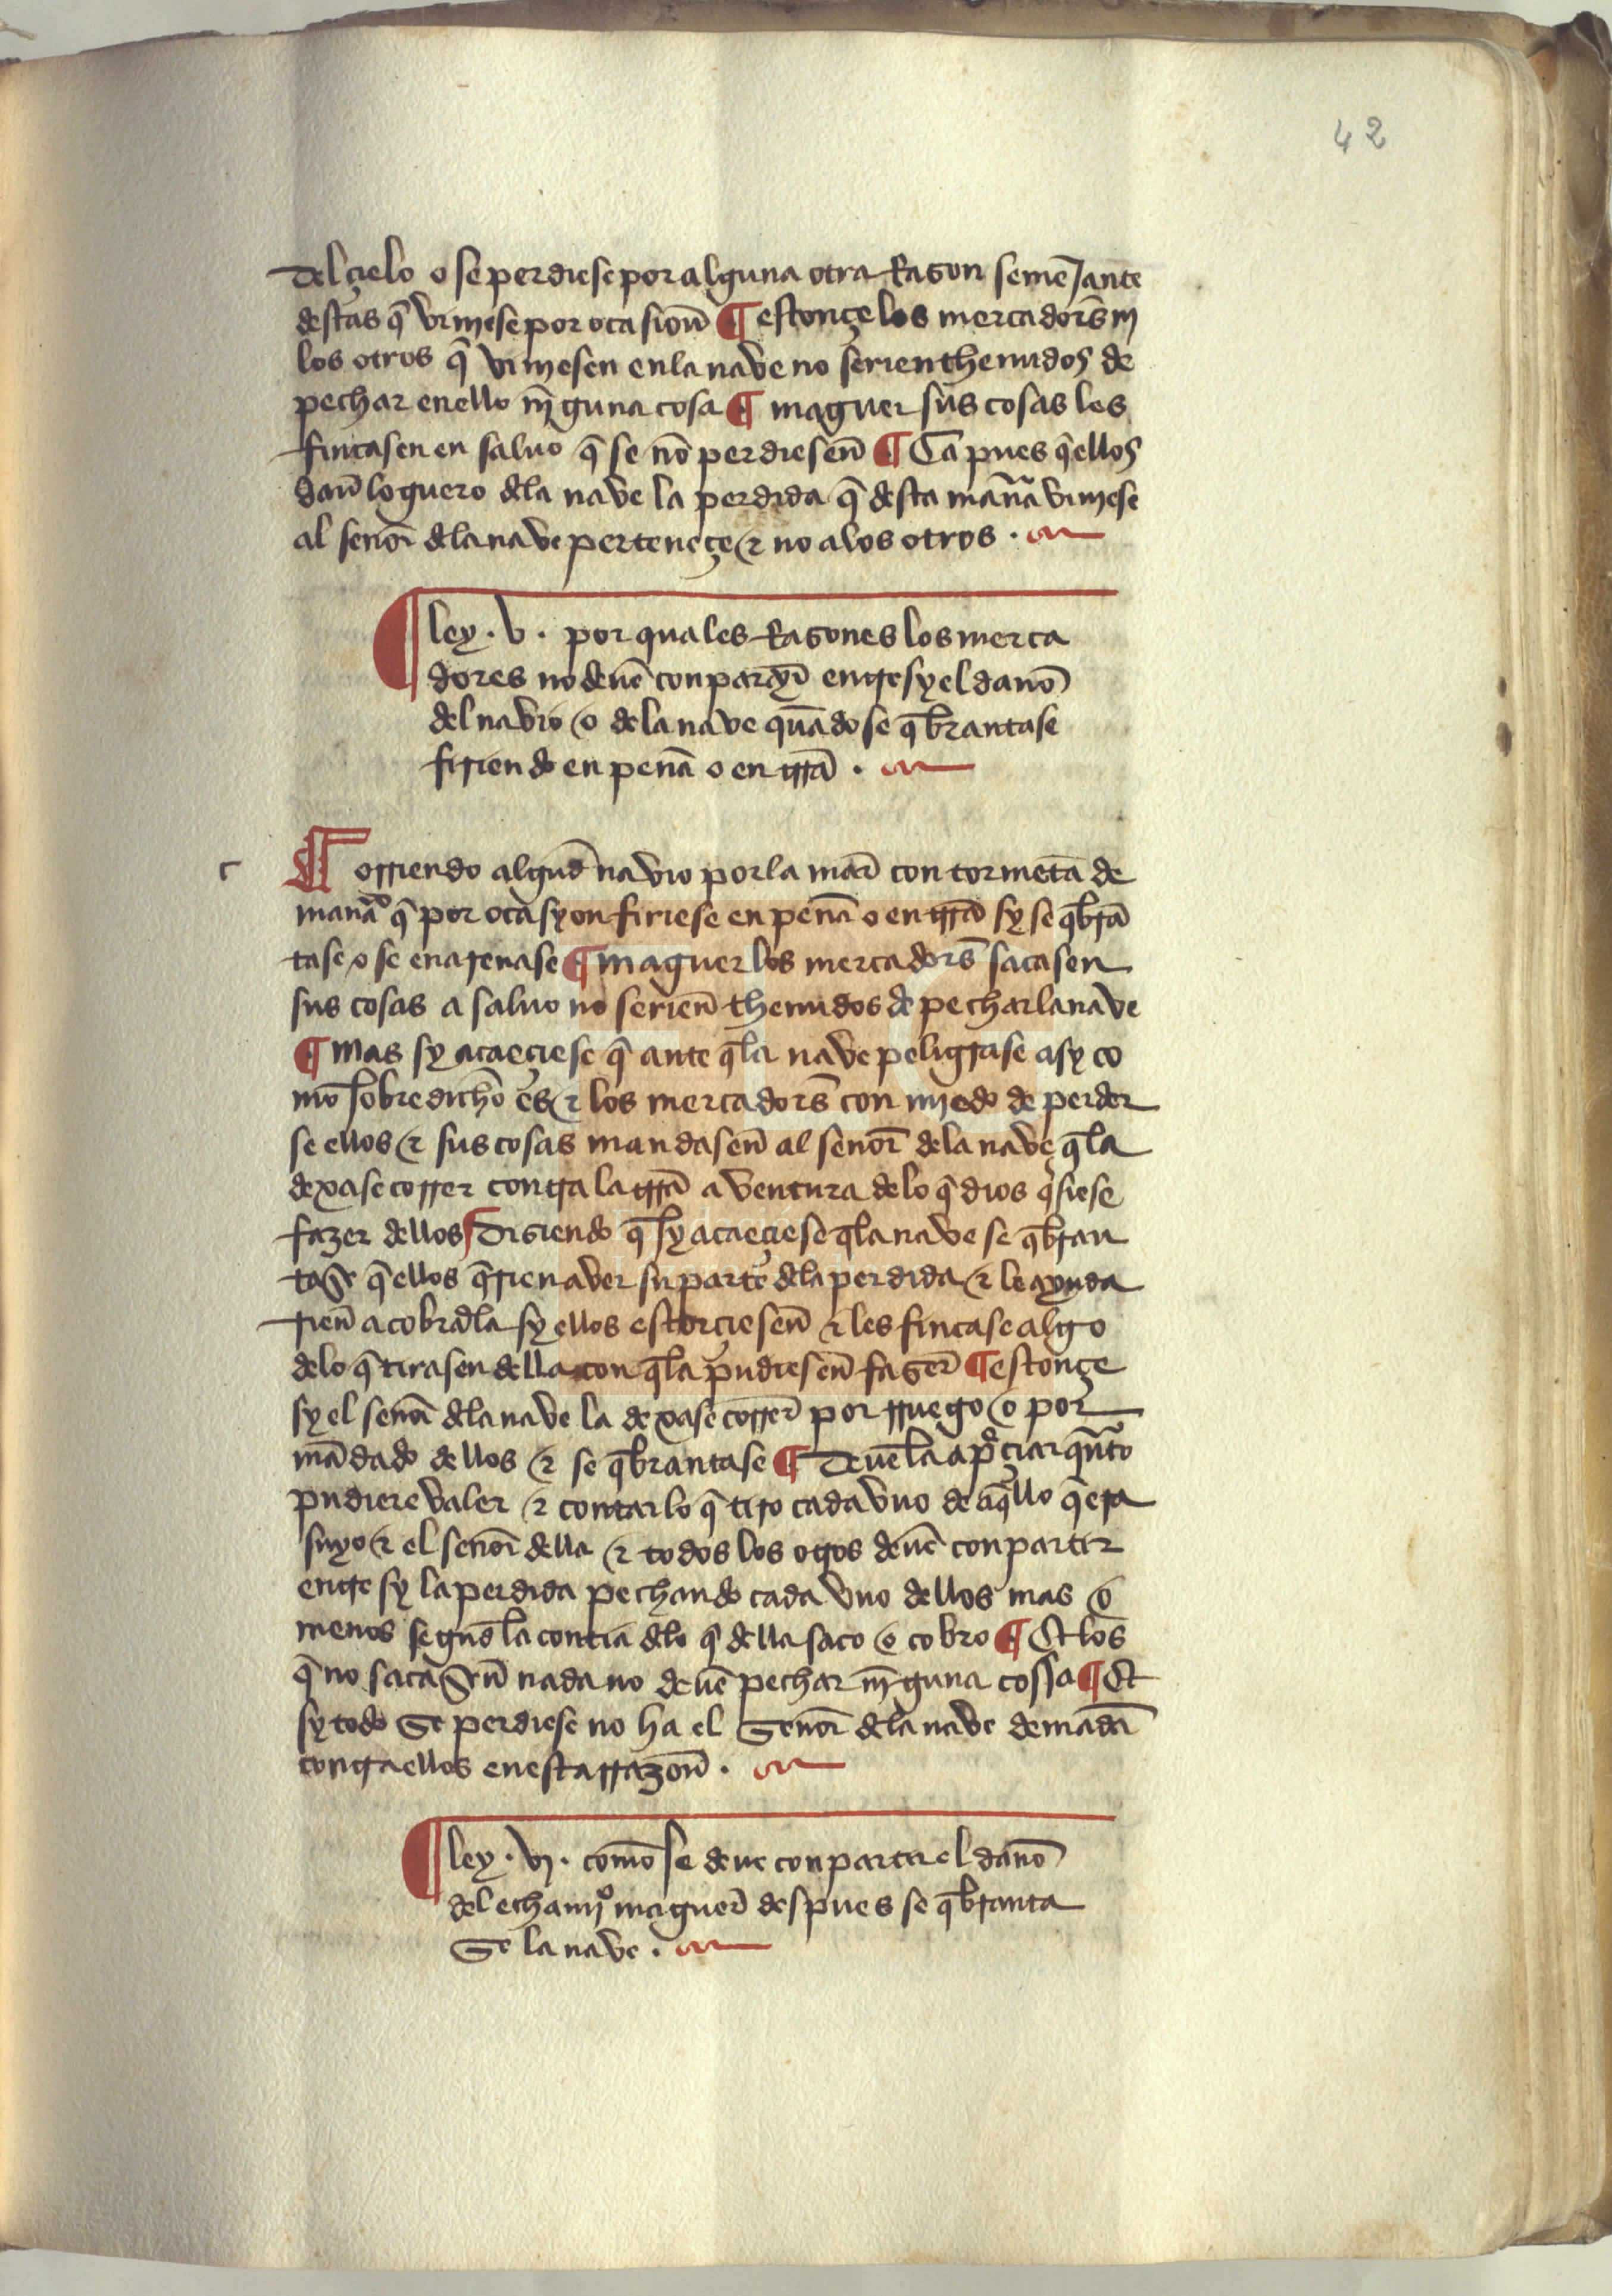 42
del çielo o se perdiese por alguna otra Rason semēJante
destas q̄ viniese por ocasion̄ ¶ estonçe los mercadors̄ nj
los otros q̄ viniesen en la nave no serien thenudos de
pechar en ello nj̄guna cosa ¶ maguer sus cosas les
fincasen en salvo q̄ se nō perdiesen̄ ¶ Ca pues q̄ ellos
dan̄ loguero dela nave la perdida q̄ desta man̄a viniese
al senor̄ dela nave perteneçe ⁊ no a los otros .
¶ ley . v . por quales Rasones los merca
dores no devē conpartyr̄ entre sy el dano
del navio o dela nave quādo se q̄brantase
firiendo en pena o en trr̄a .
c
Corriendo algund̄ navio por la mar̄ con tormēta de
manāo q̄ por ocasyon firiese en pena o en trr̄a sy se q̄brā
tase o se enarenase ¶ maguer los mercadors̄ sacasen
sus cosas a salvo no serien̄ thenudos de pechar la nave
¶ mas sy acaeçiese q̄ ante q̄ la nave peligrase asy co
mo sobre dicho es ⁊ los mercadors̄ con mjedo de perder
se ellos ⁊ sus cosas mandasen̄ al senor̄ dela nave q̄ la
dexase correr contra la trr̄a a ventura delo q̄ dios q̄siese
fazer dellos Disiendo q̄ sy acaeçiese q̄ la nave se q̄bran
tase q̄ ellos q̄rien aver su parte dela perdida ⁊ le ayuda
rien̄ a cobrar̄la sy ellos estorçiesen̄ ⁊ les fincase algo
delo q̄ tirasen della con q̄ la pudiesen̄ faser̄ ¶ estonçe
sy el senor̄ dela nave la dexase correr̄ por rruego o por
mādado dellos ⁊ se q̄brantase ¶ Devē la ap̄çiar quāto
pudiere valer ⁊ contar lo q̄ tiro cada vno de aq̄llo q̄ era
suyo ⁊ el senor̄ della ⁊ todos los otros devē conpartir
entre sy la perdida pechando cada vno dellos mas o
menos segund̄ la contia delo q̄ della saco o cobro ¶ Et los
q̄ no sacasen̄ nada no devē pechar nj̄guna cossa ¶ Et
sy todo se perdiese no ha el senor̄ dela nave demādā
contra ellos en esta rrazon̄ .
¶ ley . vj . como se deve conpartir el dano
del echamjo maguer̄ despues se q̄branta
se la nave .